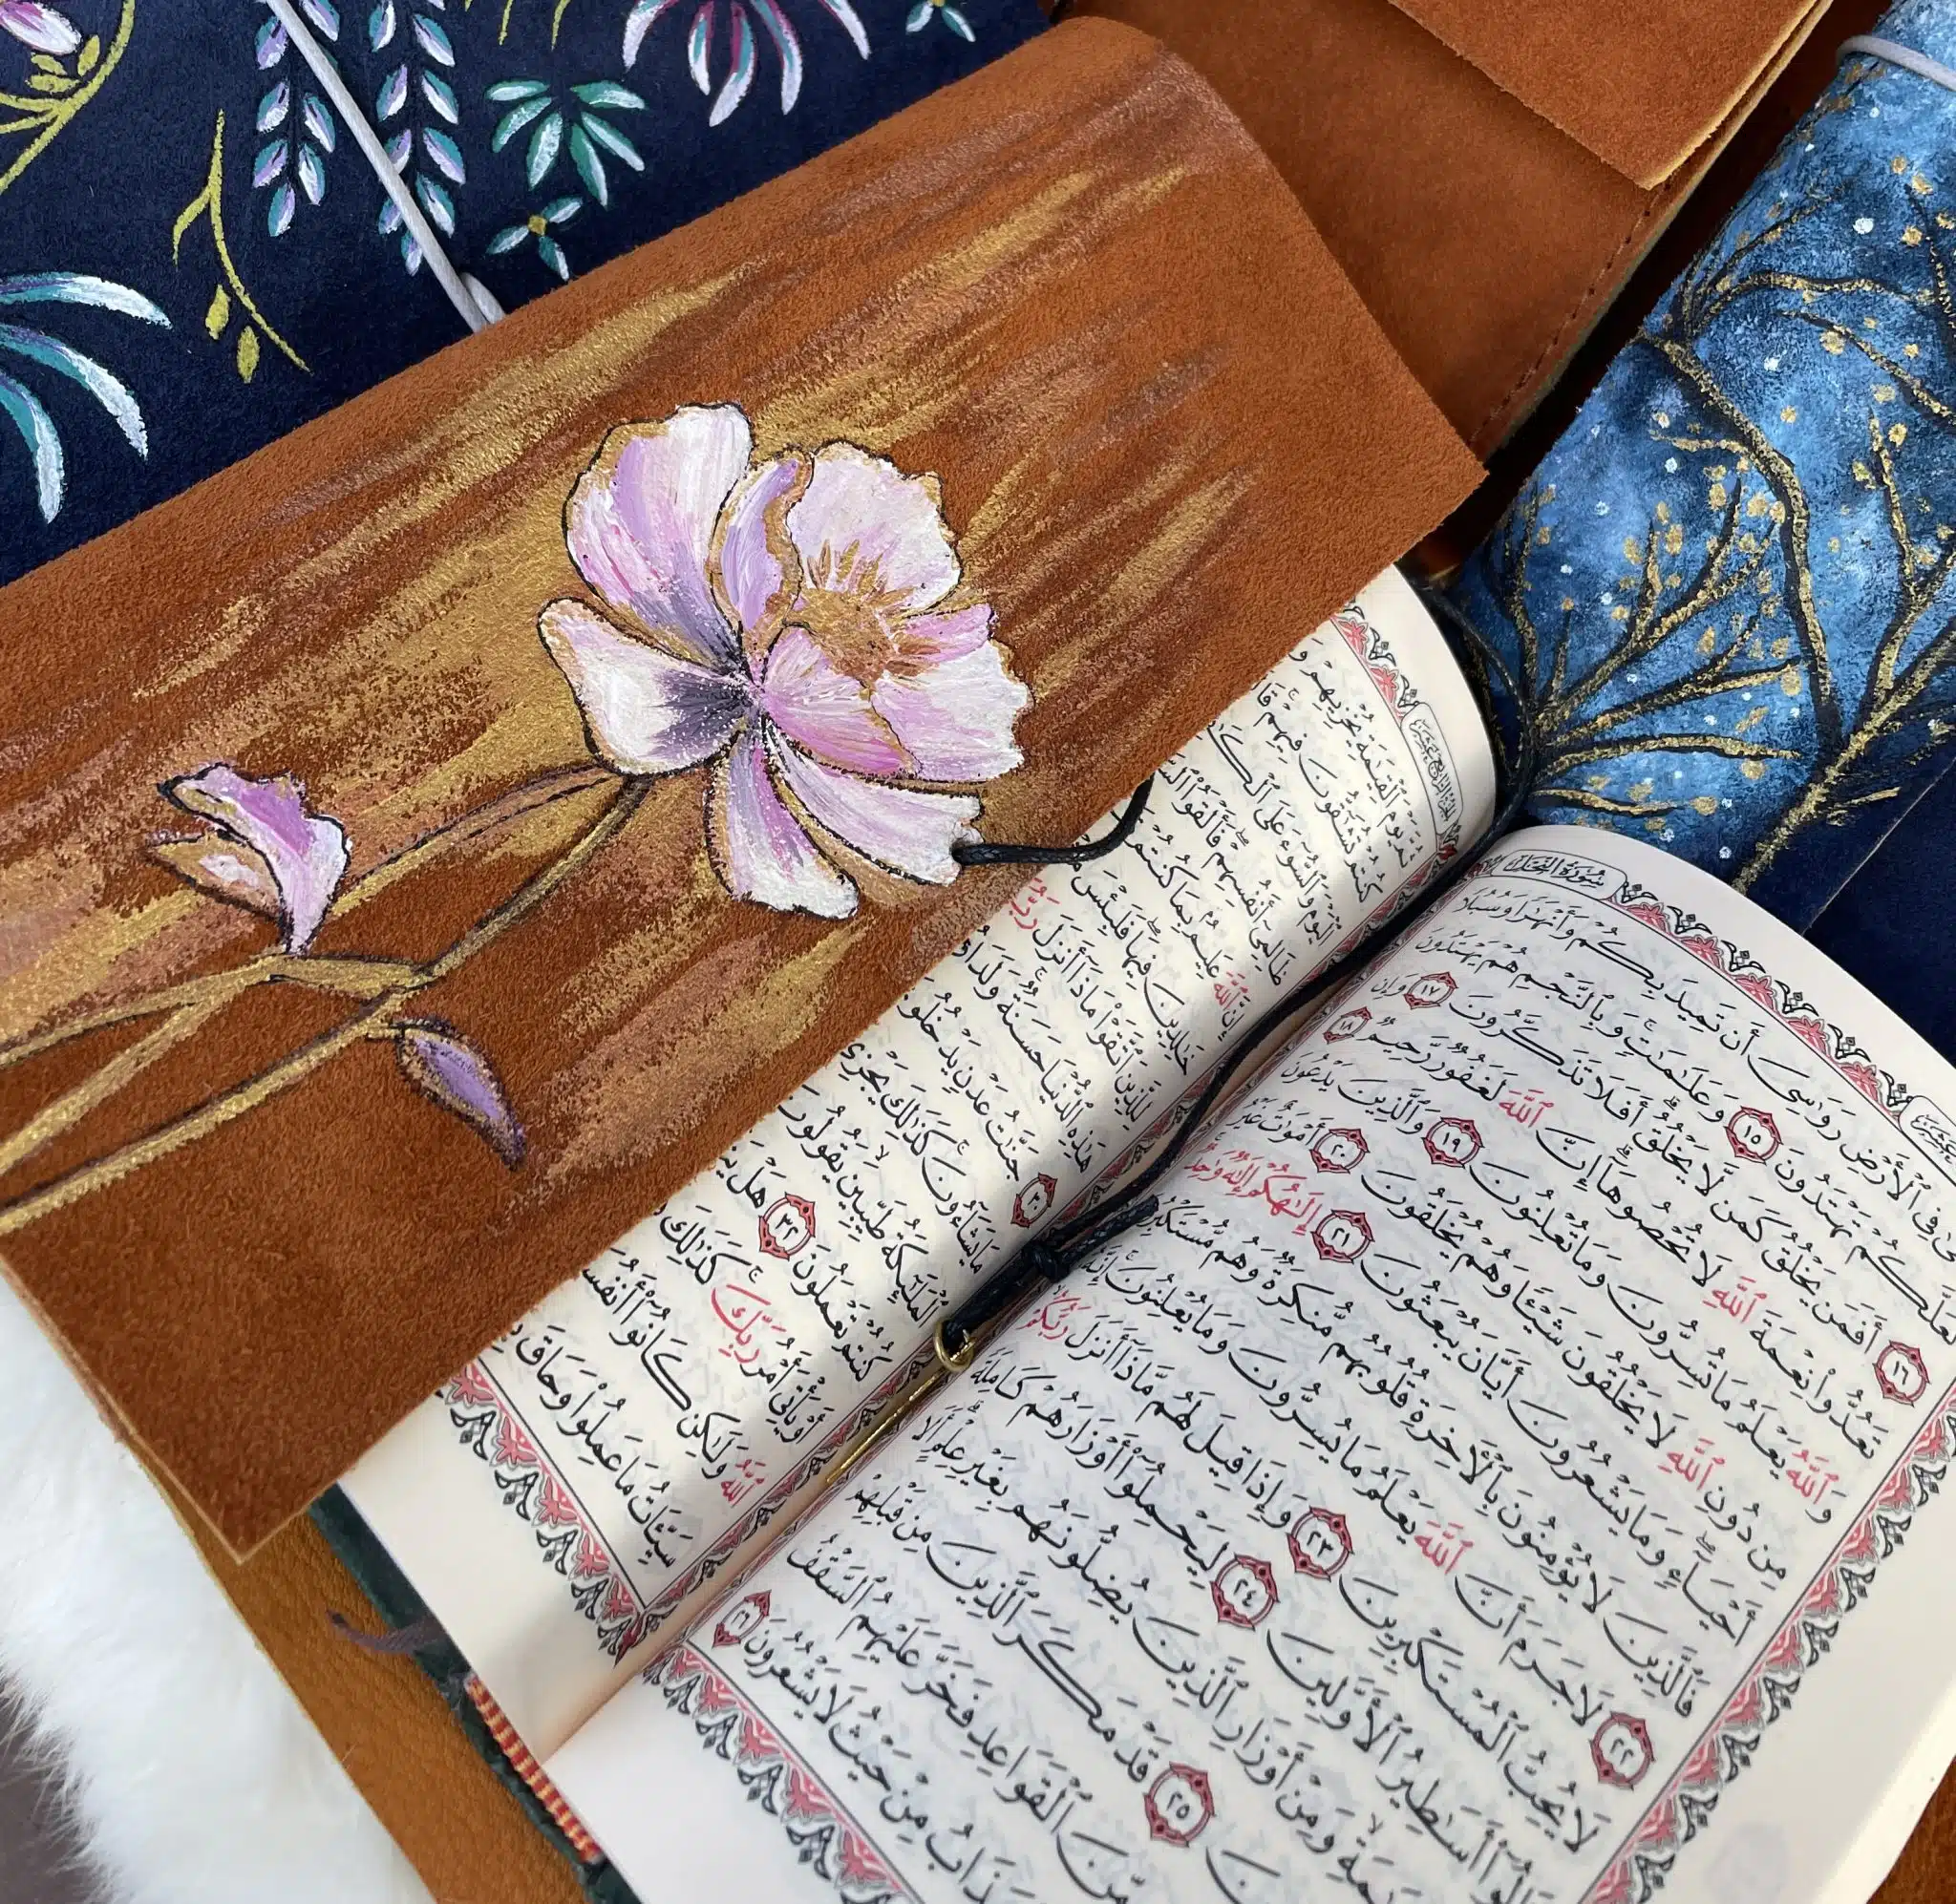 سُورَةُ النَّحْلِ
فِي ٱلْأَرْضِ رَوَٰسِيَ أَن تَمِيدَ بِكُمْ وَأَنْهَٰرًا وَسُبُلًا
لَّعَلَّكُمْ تَهْتَدُونَ ١٥ وَعَلَٰمَٰتٍ وَبِٱلنَّجْمِ هُمْ يَهْتَدُونَ
١٦ أَفَمَن يَخْلُقُ كَمَن لَّا يَخْلُقُ أَفَلَا تَذَكَّرُونَ ١٧ وَإِن
تَعُدُّوا۟ نِعْمَةَ ٱللَّهِ لَا تُحْصُوهَآ إِنَّ ٱللَّهَ لَغَفُورٌ رَّحِيمٌ ١٨
وَٱللَّهُ يَعْلَمُ مَا تُسِرُّونَ وَمَا تُعْلِنُونَ ١٩ وَٱلَّذِينَ يَدْعُونَ
مِن دُونِ ٱللَّهِ لَا يَخْلُقُونَ شَيْـًٔا وَهُمْ يُخْلَقُونَ ٢٠ أَمْوَٰتٌ غَيْرُ
أَحْيَآءٍ وَمَا يَشْعُرُونَ أَيَّانَ يُبْعَثُونَ ٢١ إِلَٰهُكُمْ إِلَٰهٌ وَٰحِدٌ
فَٱلَّذِينَ لَا يُؤْمِنُونَ بِٱلْأَخِرَةِ قُلُوبُهُم مُّنكِرَةٌ وَهُم مُّسْتَكْبِرُونَ
٢٢ لَا جَرَمَ أَنَّ ٱللَّهَ يَعْلَمُ مَا يُسِرُّونَ وَمَا يُعْلِنُونَ إِنَّهُۥ
لَا يُحِبُّ ٱلْمُسْتَكْبِرِينَ ٢٣ وَإِذَا قِيلَ لَهُم مَّاذَآ أَنزَلَ رَبُّكُمْ
أَسَٰطِيرُ ٱلْأَوَّلِينَ ٢٤ لِيَحْمِلُوٓا۟ أَوْزَارَهُمْ كَامِلَةً
وَمِنْ أَوْزَارِ ٱلَّذِينَ يُضِلُّونَهُم بِغَيْرِ عِلْمٍ أَلَا
٢٥ قَدْ مَكَرَ ٱلَّذِينَ مِن قَبْلِهِمْ
مِّنَ ٱلْقَوَاعِدِ فَخَرَّ عَلَيْهِمُ ٱلسَّقْفُ
مِنْ حَيْثُ لَا يَشْعُرُونَ ٢٦
الجزء الرابع عشر
ثُمَّ يَوْمَ ٱلْقِيَٰمَةِ يُخْزِيهِمْ
كُنتُمْ تُشَٰٓقُّونَ فِيهِمْ
ٱلْيَوْمَ وَٱلسُّوٓءَ عَلَى
ظَالِمِىٓ أَنفُسِهِمْ فَأَلْقَوُا۟
إِنَّ ٱللَّهَ عَلِيمٌۢ بِمَا كُنتُمْ
خَٰلِدِينَ فِيهَا فَلَبِئْسَ
لِلَّذِينَ ٱتَّقَوْا۟ مَاذَآ أَنزَلَ
هَٰذِهِ ٱلدُّنْيَا حَسَنَةٌ وَلَدَارُ
٣٠ جَنَّٰتُ عَدْنٍ
مَا يَشَآءُونَ كَذَٰلِكَ يَجْزِى
ٱلْمَلَٰٓئِكَةُ طَيِّبِينَ يَقُولُونَ
كُنتُمْ تَعْمَلُونَ ٣٢ هَلْ
أَوْ يَأْتِىَ أَمْرُ رَبِّكَ كَذَٰلِكَ
ٱللَّهُ وَلَٰكِن كَانُوٓا۟
سَيِّـَٔاتُ مَا عَمِلُوا۟ وَحَاقَ